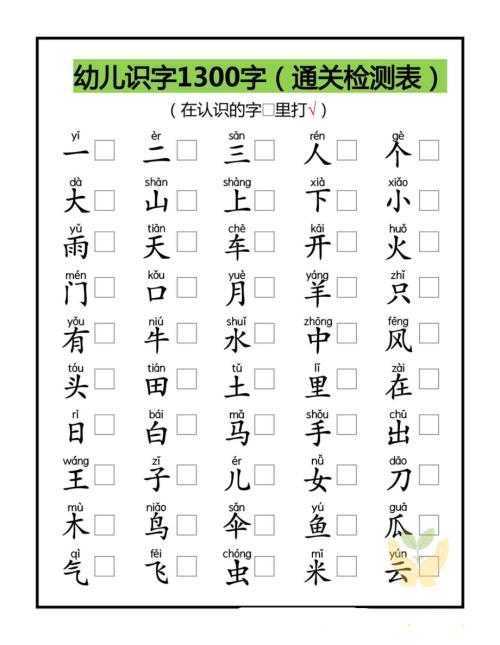 幼儿识字1300字（通关检测表）
（在认识的字□里打√）
yī èr sān rén gè
一□ 二□ 三□ 人□ 个□
dà shān shàng xià xiǎo
大□ 山□ 上□ 下□ 小□
yǔ tiān chē kāi huǒ
雨□ 天□ 车□ 开□ 火□
mén kǒu yuè yáng zhǐ
门□ 口□ 月□ 羊□ 只□
yǒu niú shuǐ zhōng fēng
有□ 牛□ 水□ 中□ 风□
tóu tián tǔ lǐ zài
头□ 田□ 土□ 里□ 在□
rì bái mǎ shǒu chū
日□ 白□ 马□ 手□ 出□
wáng zǐ ér nǚ dāo
王□ 子□ 儿□ 女□ 刀□
mù niǎo sǎn yú guā
木□ 鸟□ 伞□ 鱼□ 瓜□
qì fēi chóng mǐ yún
气□ 飞□ 虫□ 米□ 云□